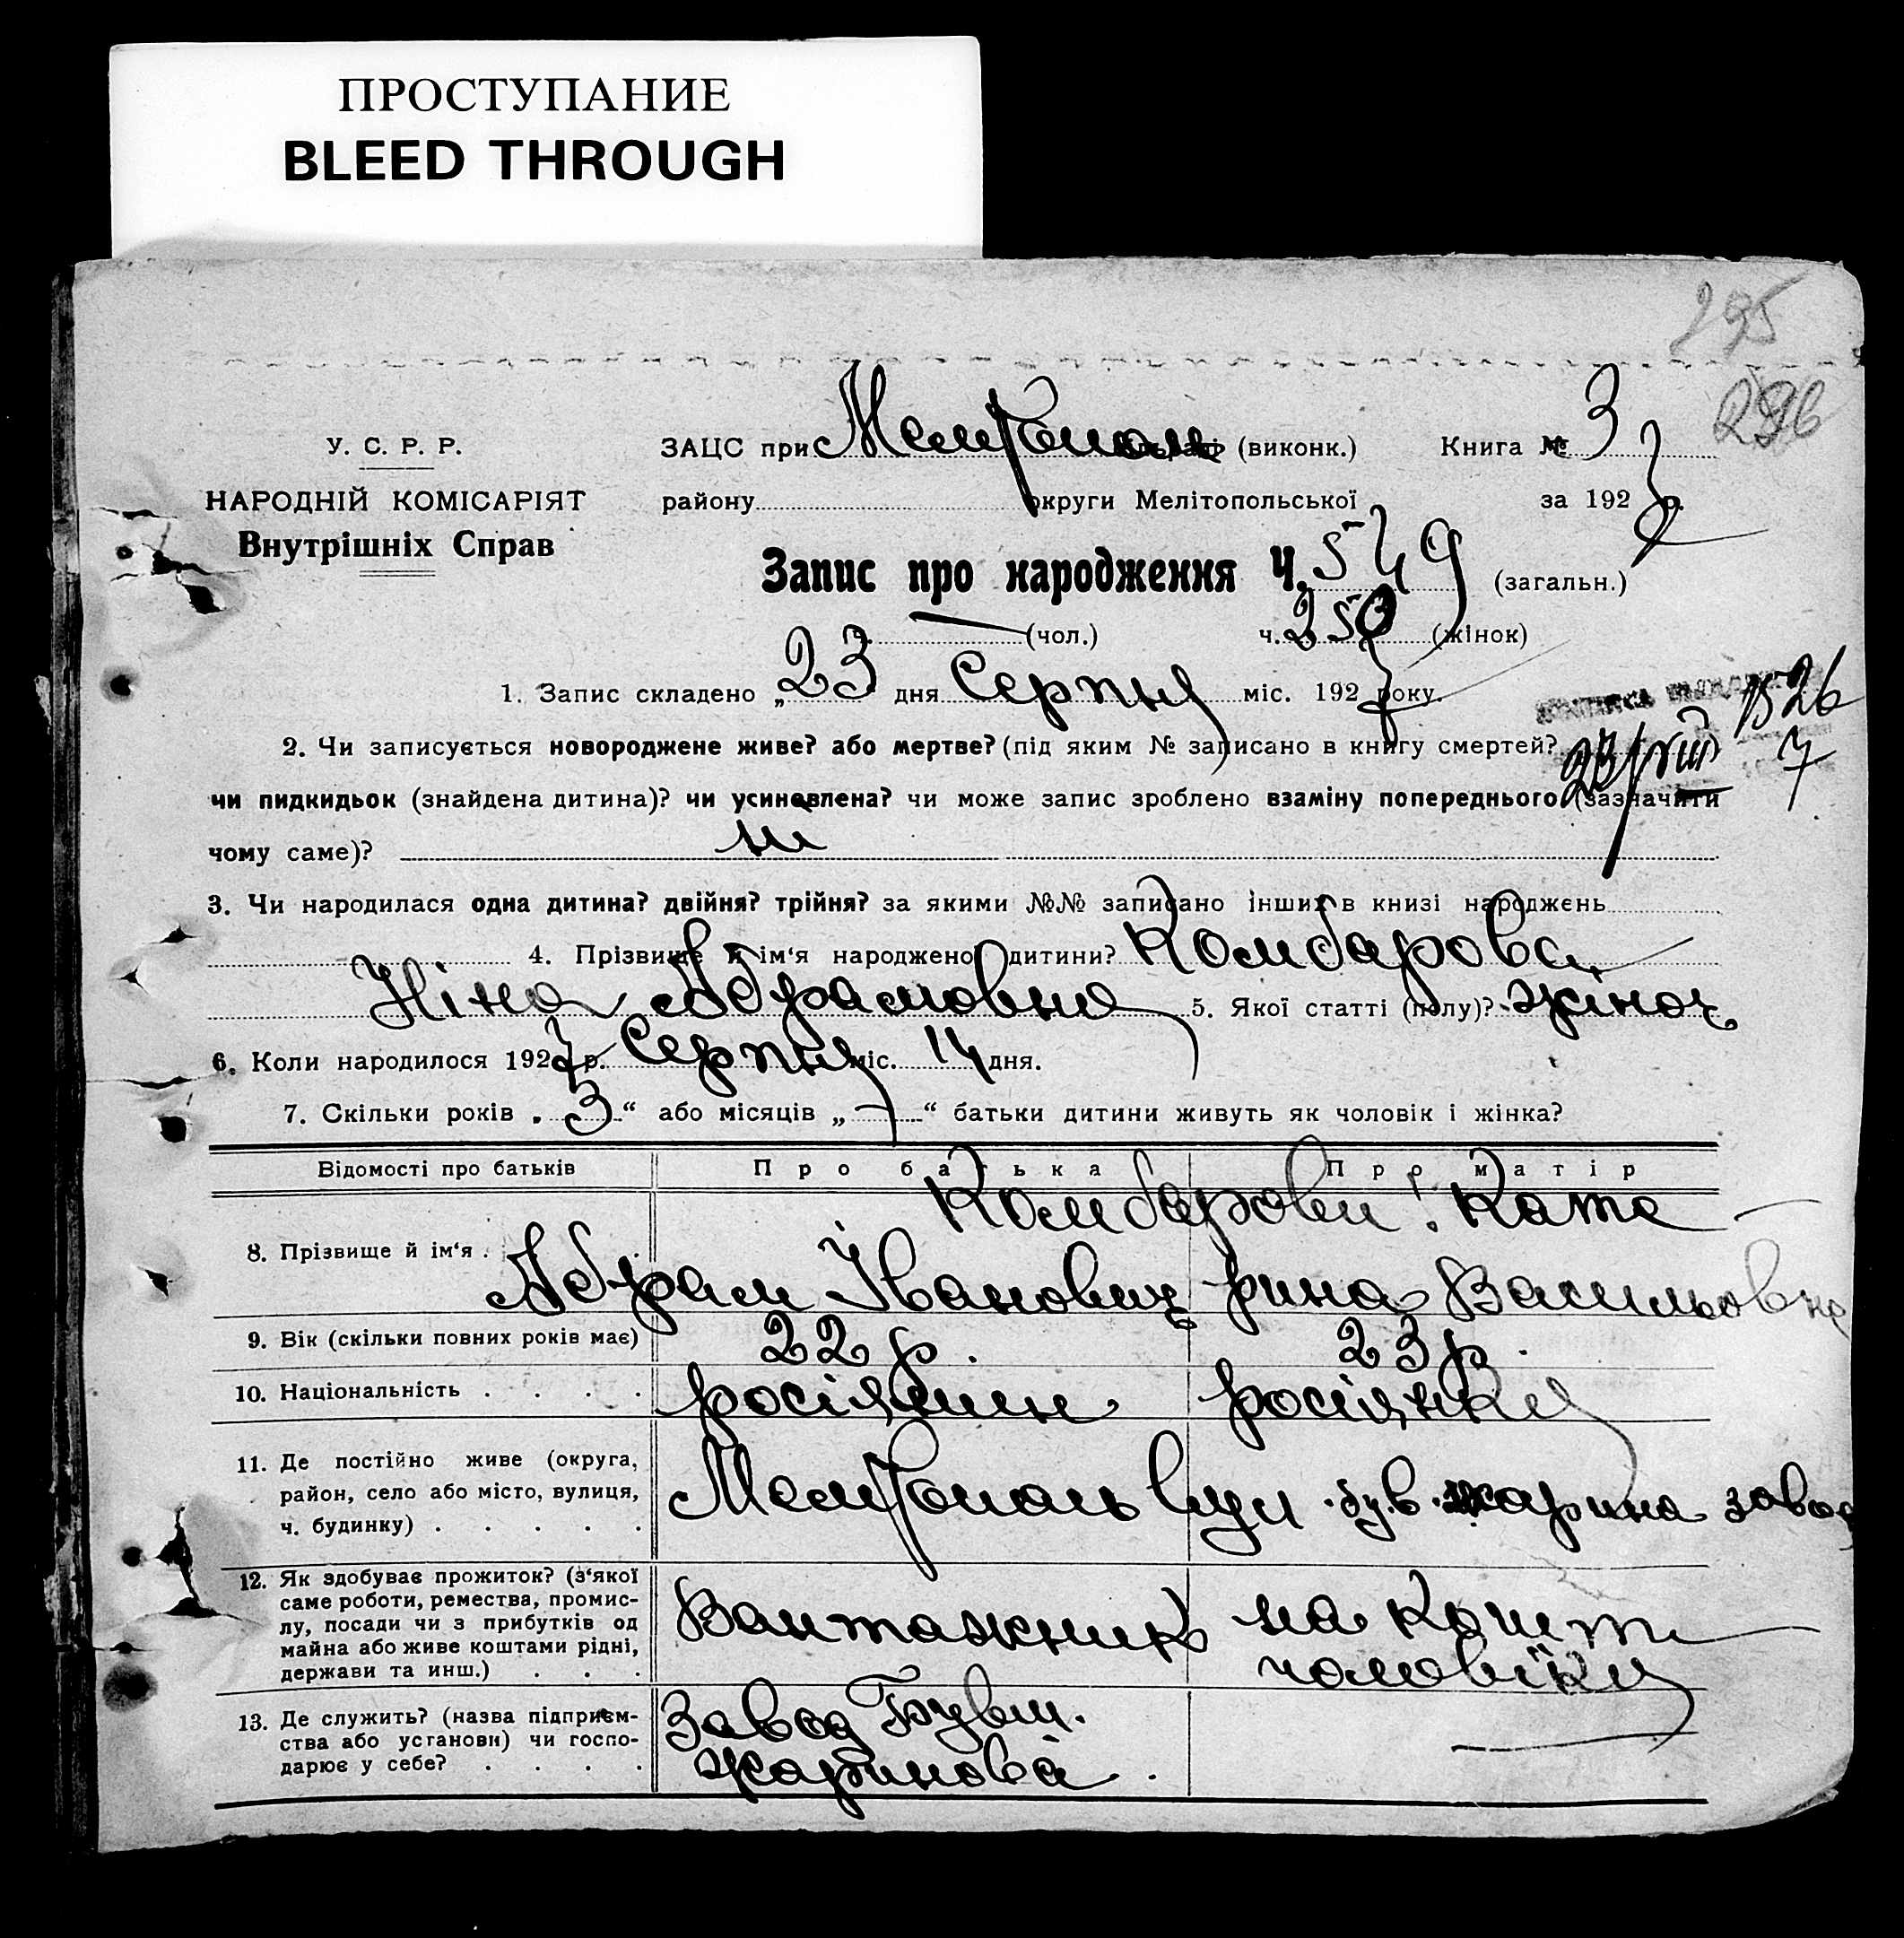 ПРОСТУПАНИЕ
BLEED THROUGH
295
296
У. С. Р. Р.
НАРОДНІЙ КОМІСАРІЯТ
Внутрішніх Справ
ЗАЦС при Мелітополь (виконк.) Книга № 3
району округи Мелітопольської за 1927 р.
Запис про народження Ч. 549 (загальн.)
(чол.) ч. 250 (жінок)
1. Запис складено „23 дня Серпня міс. 1927 року.
2. Чи записується новороджене живе? або мертве? (під яким № записано в книгу смертей?
чи пидкидьок (знайдена дитина)? чи усиновлена? чи може запис зроблено взаміну попереднього (зазначити
чому саме)? ні
3. Чи народилася одна дитина? двійня? трійня? за якими №№ записано інших в книзі народжень
4. Прізвище й ім‘я народженої дитини? Комбарова
Ніна Абрамовна 5. Якої статті (полу)? жіноч
6. Коли народилося 1927 р. Серпня міс. 14 дня.
7. Скільки років „3“ або місяців „—“ батьки дитини живуть як чоловік і жінка?
Відомості про батьків Про батька Про матір
8. Прізвище й ім‘я . Комбарови: Кате
Абрам Іванович рина Васильовна
9. Вік (скільки повних років має) 22 р. 23 р.
10. Національність . . . . росіянин росіянка
11. Де постійно живе (округа,
район, село або місто, вулиця,
ч. будинку) . . . . . Мелітополь вул. був. жарина завод
12. Як здобуває прожиток? (з‘якої
саме роботи, ремества, промис-
лу, посади чи з прибутків од
майна або живе коштами рідні,
держави та инш.) . . . Вантажник на кошти
чоловіка
13. Де служить? (назва підприєм-
ства або установи) чи госпо-
дарює у себе? . . . . Завод Бувш.
жаринова.